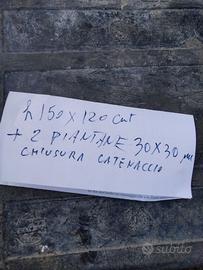 h 150 X 120 cm
+ 2 PIANTANE 30X30 mm
CHIUSURA CATENACCIO
subito